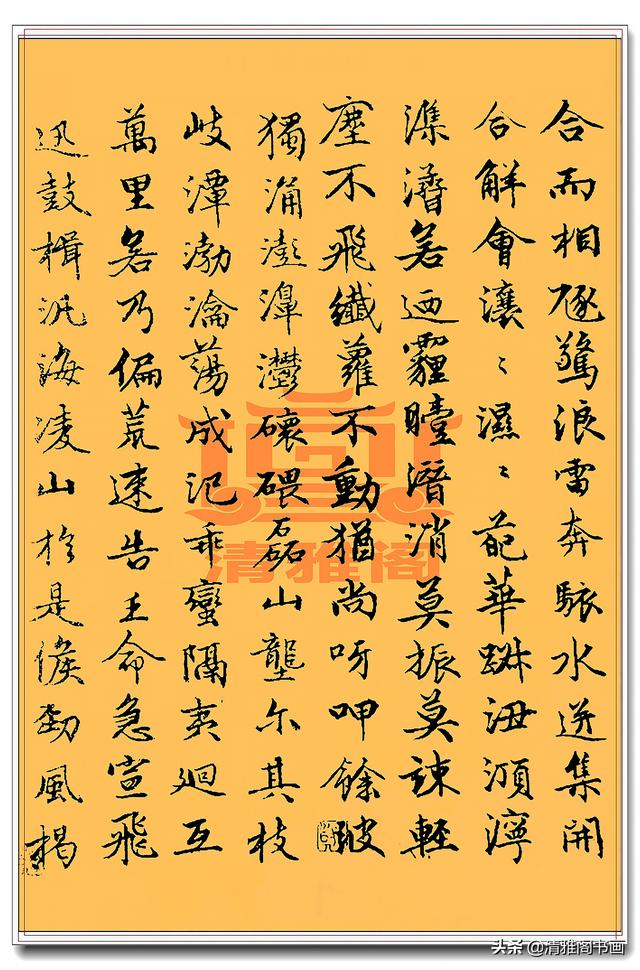 合而相豗驚浪雷奔駭水迸集開
合解會瀼々濕々葩華踧沑澒濘
潗若迺霾曀潛消莫振莫竦輕
塵不飛纖蘿不動猶尚呀呷餘波
獨涌澎濞灪碨磊山壟尔其枝
岐潭渤瀹蕩成汜乖蠻隔夷迴互
萬里若乃偏荒速告王命急宣飛
迅鼓楫汎海凌山於是候勁風揭
清雅阁
头条 @清雅阁书画